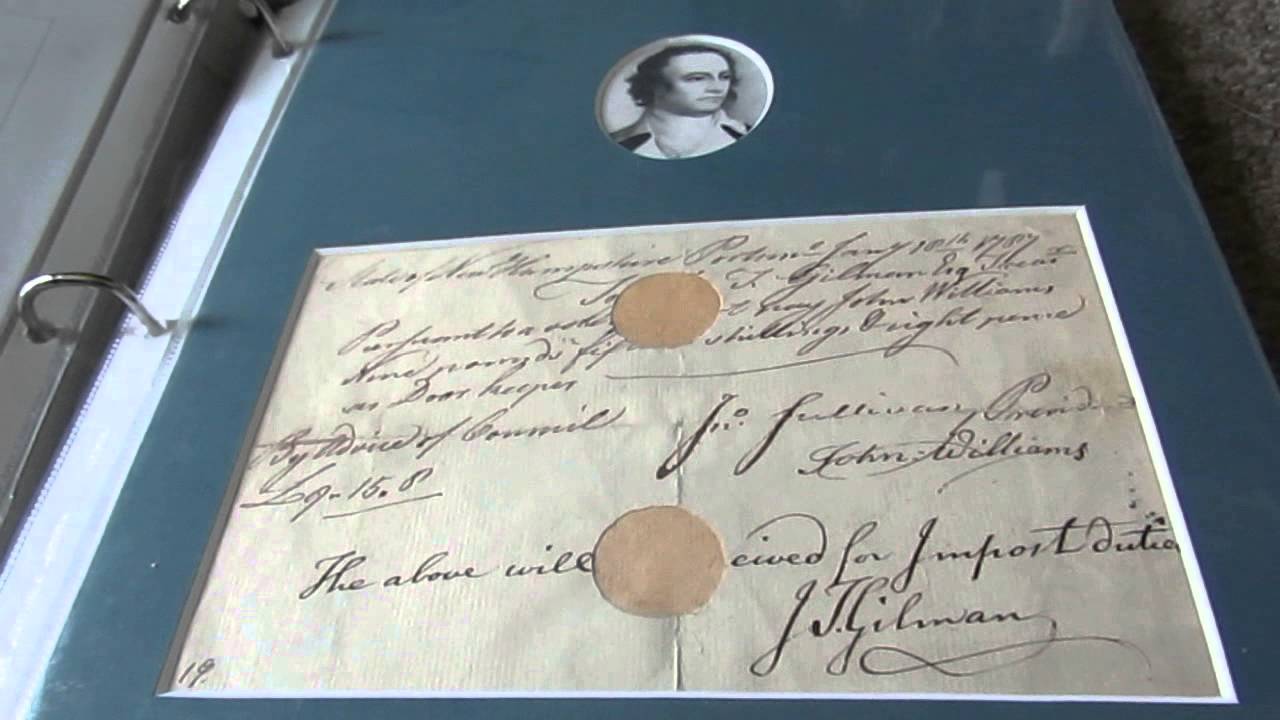 State of New Hampshire Portsmo Jany 18th 1787
To J. Gilman Esq Treasr
Pursuant to a vote pay John Williams
Nine pounds fif shillings & eight pence
as Door keeper
By Advice of Council
Jno Sullivan Presid
£9-15.8
John Williams
The above will ceived for Impost duties
J T Gilman
19